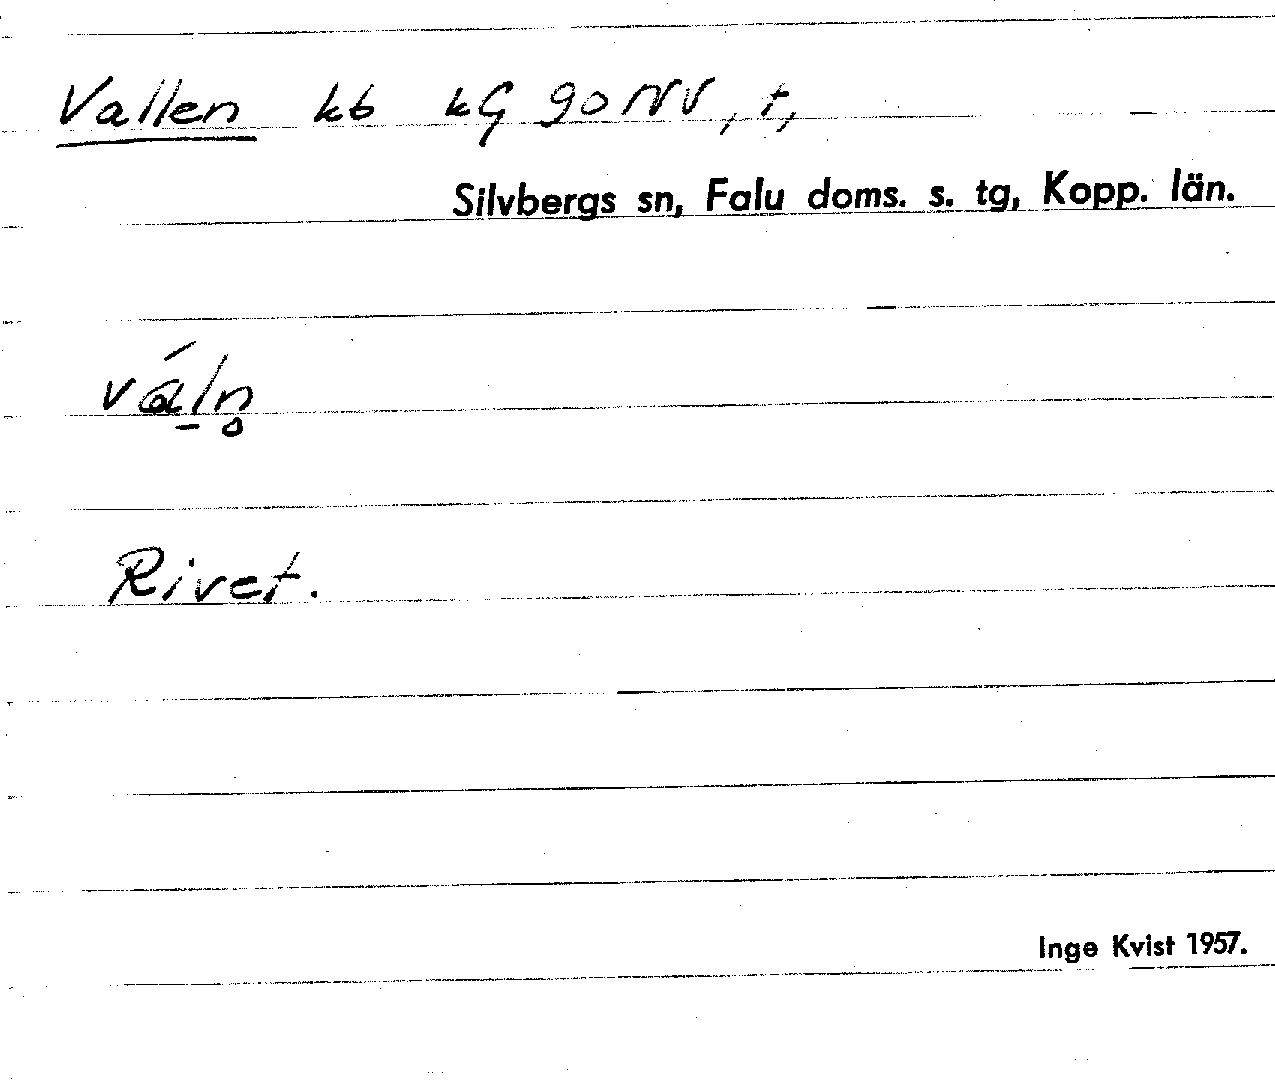 Vallen kb kG 90 NV, t,
Silvbergs sn, Falu doms. s. tg, Kopp. län.
vá̱ln̥
Rivet.
Inge Kvist 1957.